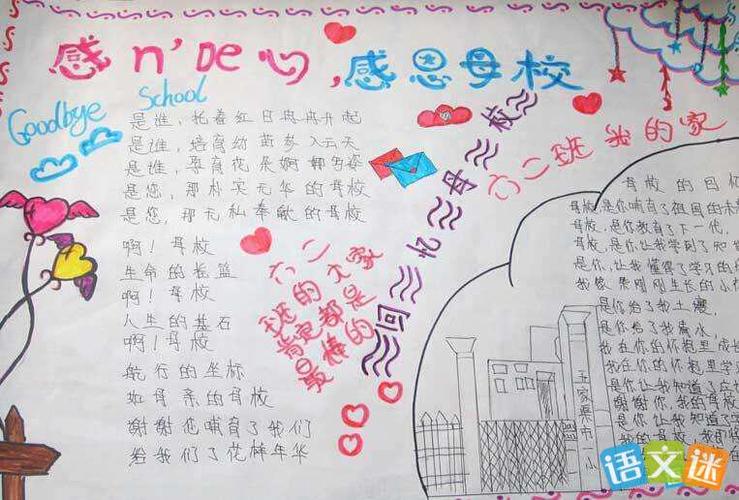 感n'De心,感恩母校
Goodbye School
是谁,托着红日冉冉升起
是谁,培育幼苗参入云天
是谁,
是您,那朴实无华的母校
是您,那无私奉献的母校
啊!母校
生命的摇篮
啊!母校
人生的基石
啊!母校
航行的坐标
如母亲的母校
谢谢也哺育了我们
给我们了花样年华
六二
班的大家
肯定都是
最棒的
回忆母校
六二班 我的家
母校的回忆
母校,是你哺育了祖国的未
母校,是你教育了下一代,
母校,是你,让我学到了知
是你,让我懂得了学习的
我像 果刚刚生长的小
是你给了我土壤,
是你给了我
我在你的怀抱里成
我在你的怀抱里学
是你,让我知道了
谢谢你,我的母校
是你,让我知道了
我的母校,我即将
市一小
语文迷